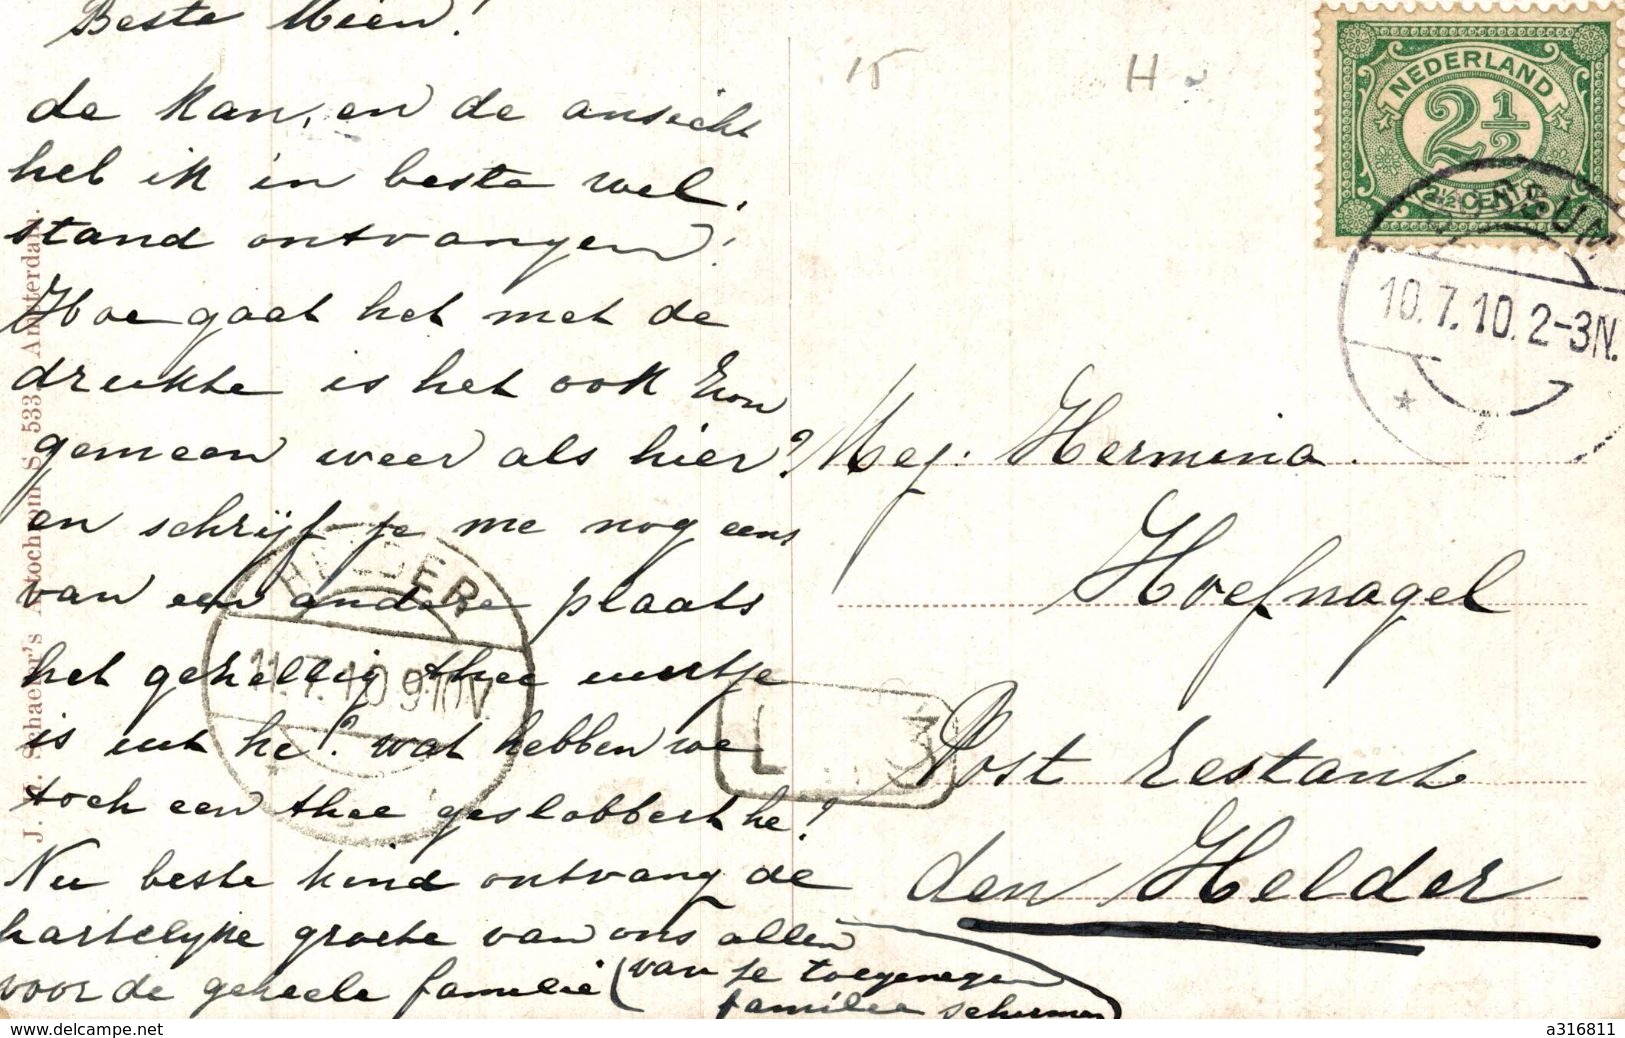 Beste Mien!
de kan, en de ansicht
heb ik in beste wel,
stand ontvangen!
Hoe gaat het met de
drukte is het ook zoon
gemeen weer als hier?
en schrijf je me nog eens
van een andere plaats
het gezellig thee uurtje
is uit he!? wat hebben we
toch een thee geslobbert he!?
Nu beste kind ontvang de
hartelijke groete van ons allen
voor de geheele familie
(van je toegenegen
familie schermer)
15
H
NEDERLAND
2½
2½ CENTS
SUM
10.7.10. 2-3N.
Mej. Hermina.
Hoefnagel
Post Restant
den Helder
HELDER
11.7.10 9-10V
L 3
J. H. Schaefer's Autochrom S. 533 Amsterdam.
a316811
www.delcampe.net